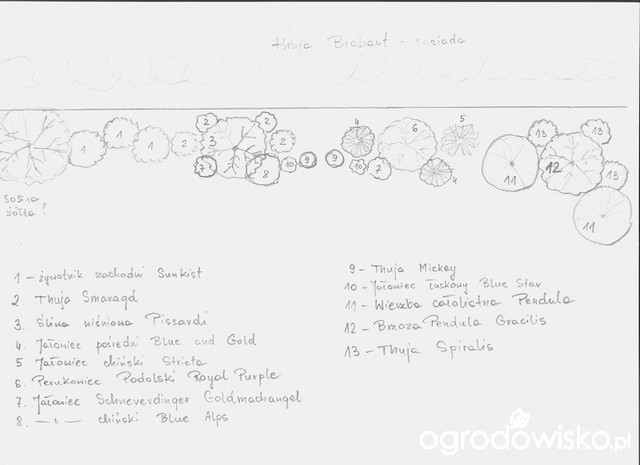 thuja Brabant - sąsiada
2
2
4
5
1
1
1
2
3
2
6
13
13
7
8
10
9
9
10
7
4
11
12
13
11
sosna
żółta?
1 - żywotnik zachodni Sunkist
2. Thuja Smaragd
3. Śliwa wiśniowa Pissardi
4. Jałowiec pośredni Blue and Gold
5 Jałowiec chiński Stricta
6. Perukowiec Podolski Royal Purple
7. Jałowiec Schneverdinger Goldmachangel
8. —"— chiński Blue Alps
9 - Thuja Mickey
10 - Jałowiec łuskowy Blue Star
11 - Wierzba całolistna Pendula
12 - Brzoza Pendula Gracilis
13 - Thuja Spiralis
ogrodowisko.pl